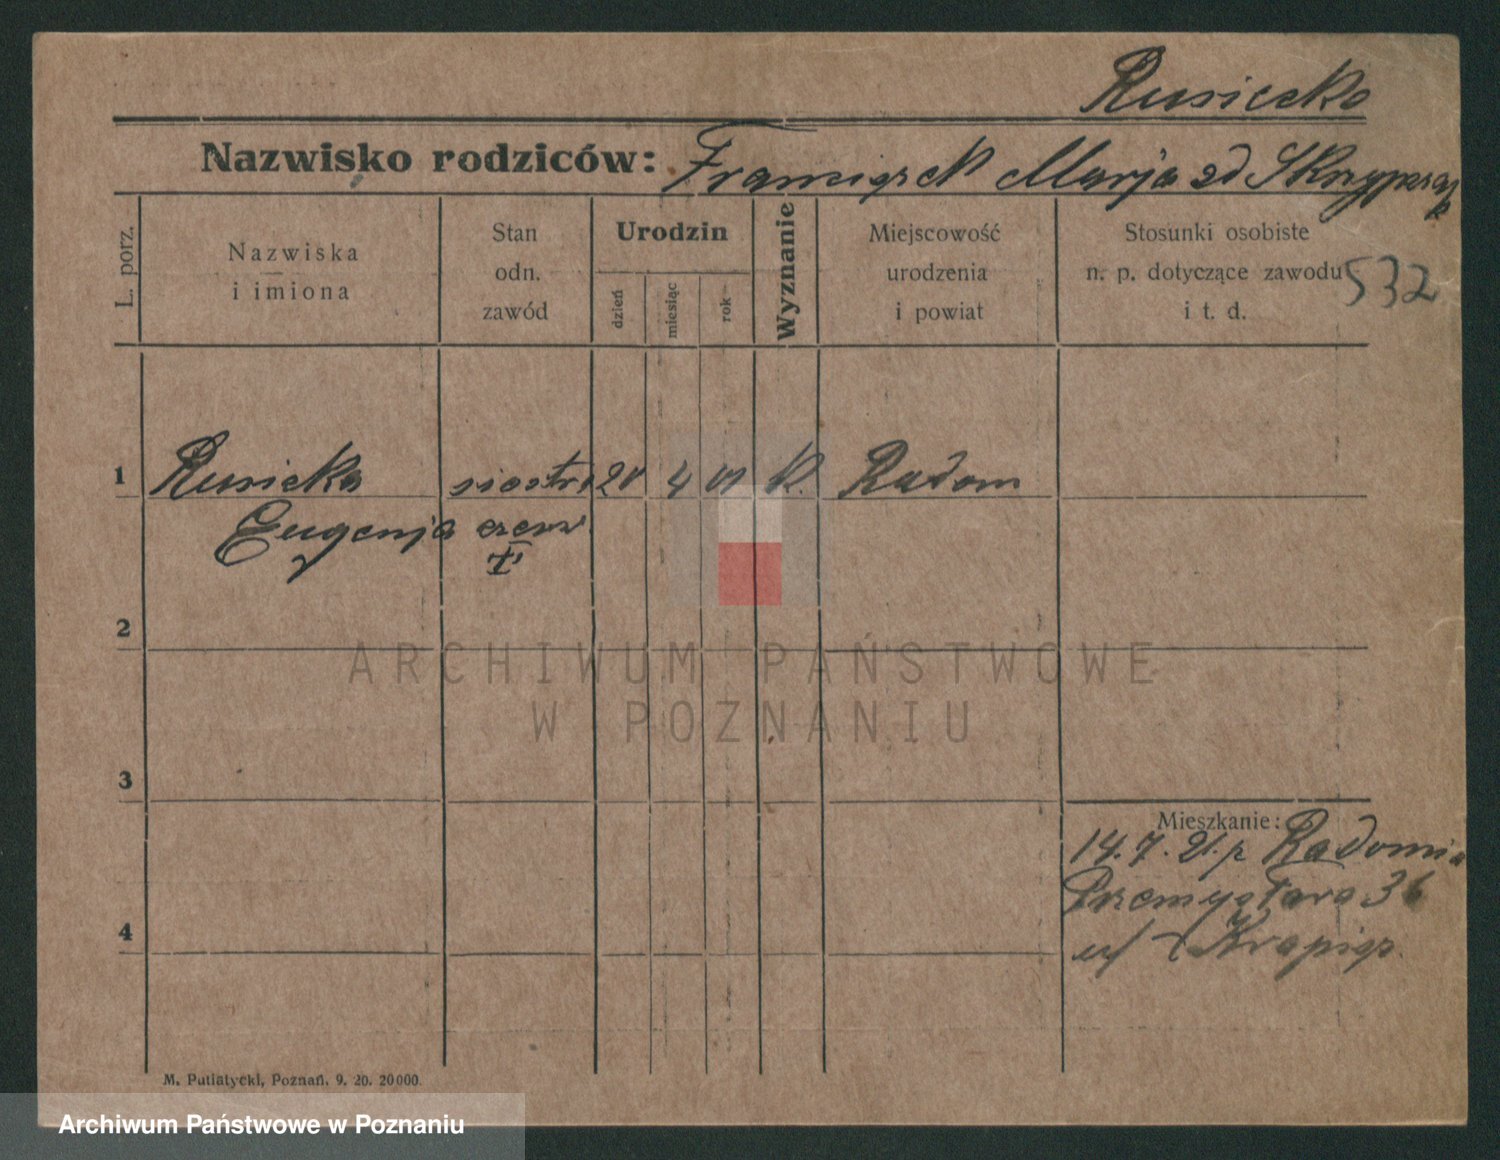 Rusiecko
Nazwisko rodziców: Franciszek Marja zd Skrzypczak
L. porz.
Nazwiska
i imiona
Stan
odn.
zawód
Urodzin
dzień
miesiąc
rok
Wyznanie
Miejscowość
urodzenia
i powiat
Stosunki osobiste
n. p. dotyczące zawodu
i t. d.
532
1 Rusicka siostra 20 4 01 k. Radom
Eugenja czerw.
2
ARCHIWUM PAŃSTWOWE
W POZNANIU
3
Mieszkanie:
14. 7. 21. z Radomia
Przemysłowa 36
4
M. Putiatycki, Poznań. 9. 20. 20000.
Archiwum Państwowe w Poznaniu